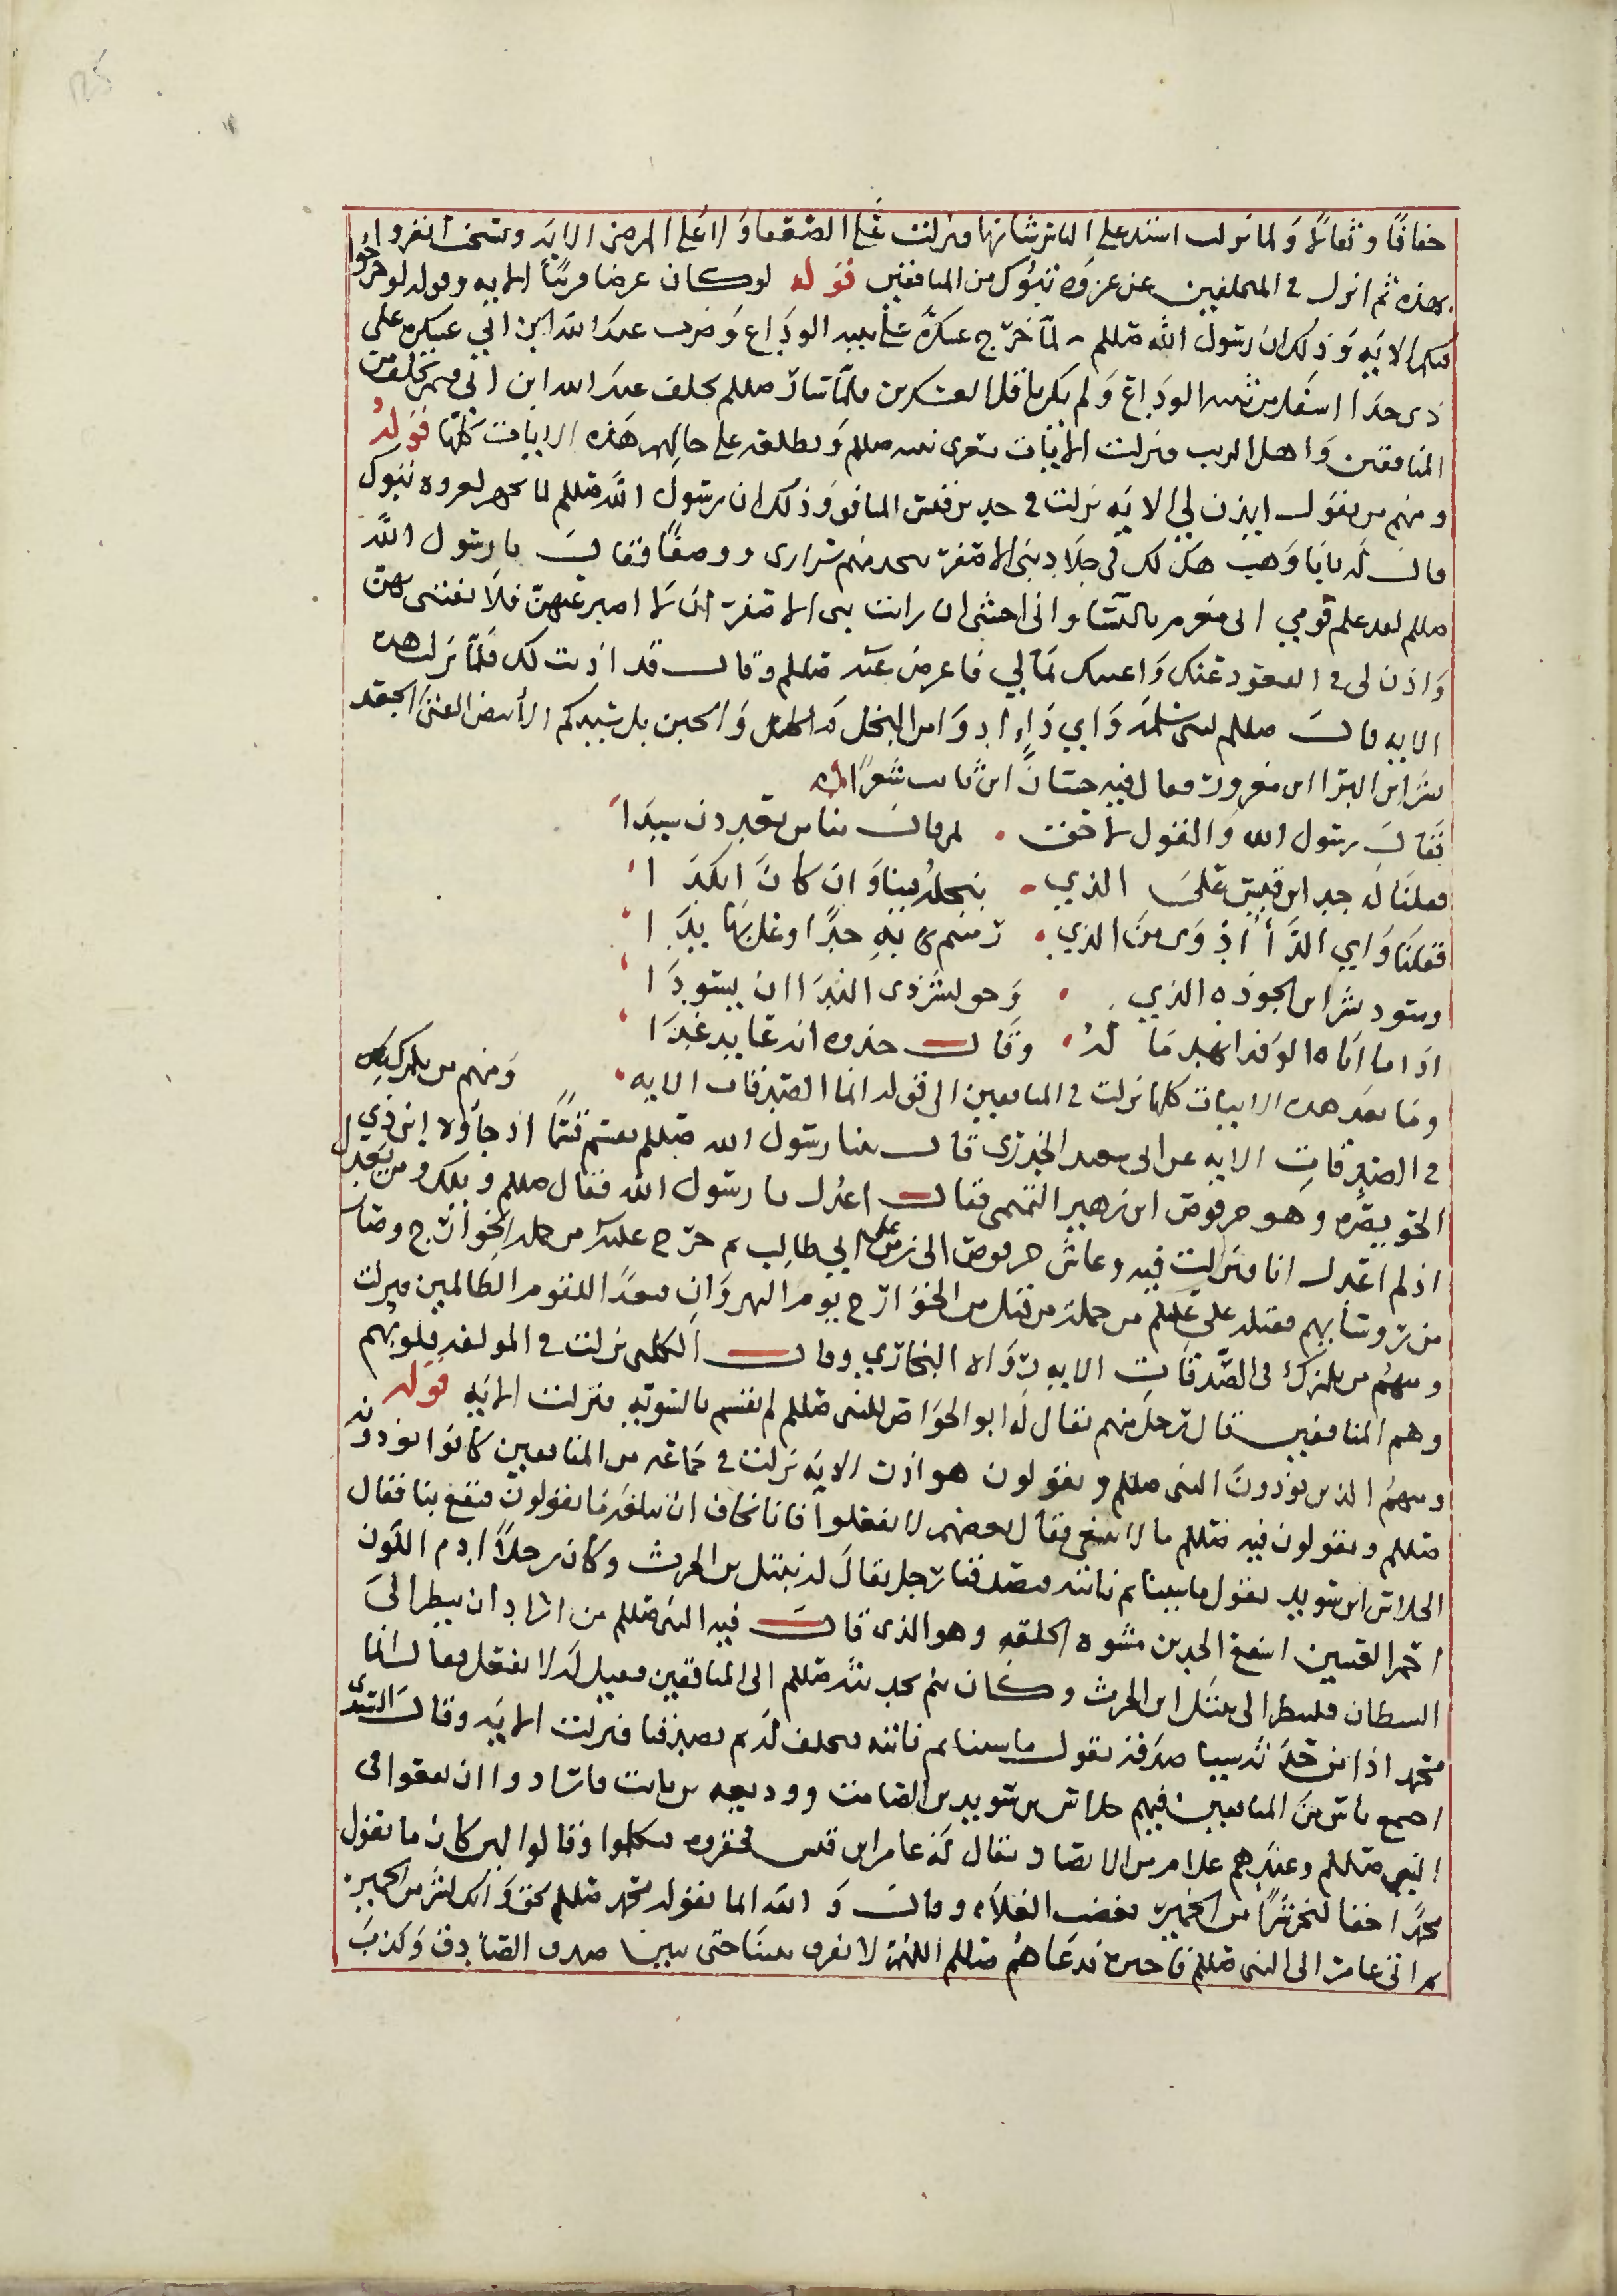 خفافًا وثقالًا ولما نزلت اشتد على الناس شانها فنزلت على الضعفا ولا على المرضى الايه ونسخت انفروا
بهذه ثم انزل في المتخلفين عن غزوه تبوك من المنافقين قوله لو كان عرضا قريبًا الايه وقوله لو خرجوا
فيكم الايه وذلك ان رسول الله صللم لما خرج عسكره على ثنيه الوداع وضرب عبد الله ابن ابي عسكره على
ذي حدا اسفل من ثنيه الوداع ولم يكن باقل العسكرين فلما سار صللم تخلف عبد الله ابن ابي فيمن تخلف من
المنافقين واهل الريب فنزلت الايات تعزي نبيه صللم وتطلعه على حالهم هذه الايات كلها قوله
ومنهم من يقول ايذن لي الايه نزلت في جد بن قيس المنافق وذلك ان رسول الله صللم لما تجهز لغزوه تبوك
قال له يابا وهب هل لك في جلاد بني الاصفر تتخذ منهم سراري ووصفًا فقال يا رسول الله
صللم لقد علم قومي اني مغرم بالنسا واني اخشى ان رايت بني الاصفر ان لا اصبر عنهن فلا تفتني بهن
واذن لي في القعود عنك واعينك بمالي فاعرض عنه صللم وقال قد اذنت لك فلما نزلت هذه
الايه قال صللم لبني سلمه واي داء ادوا من البخل والجبن بل سيدكم الابيض الفتى الجعد
بشر ابن البرا ابن معرور فقال فيه حسان ابن ثابت شعرًا
فقال رسول الله والقول لاحق . لمن قال منا من تعدون سيدا
فقلنا له جد ابن قيس على الذي . نبخله فينا وان كان انكدا
فقلنا واي الدا ادوى من الذي . رميتم به جدًا وغل بها يدا
وسود بشر ابن البرا بجوده الذي . وحق لبشر ذي الندا ان يسودا
اذا ما اتاه الوفد انهب ماله . وقال خذوه انه عايد غدا
وما بعد هذه الايات كلها نزلت في المنافقين الى قوله انما الصدقات الايه . ومنهم من يلمزك
في الصدقات الايه عن ابي سعيد الخدري قال بينا رسول الله صللم يقسم قسمًا اذ جاوه ابن ذي
الخويصره وهو حرقوص ابن زهير التميمي فقال اعدل يا رسول الله فقال صللم ويلك ومن يعدل
اذ لم اعدل انا فنزلت فيه وعاش حرقوص الى زمن علي ابي طالب ثم خرج عليه من جمله الخوارج وصار
من روسايهم فقتله علي عليلم من جمله من قتل من الخوارج يوم النهروان فبعدًا للقوم الظالمين فنزلت
ومنهم من يلمزك في الصدقات الايه رواه البخاري وقال الكلبي نزلت في المولفه قلوبهم
وهم المنافقين قال رجل منهم يقال له ابو الخواص للنبي صللم لم تقسم بالسويه فنزلت الايه قوله
ومنهم الذين يوذون النبي صللم ويقولون هو اذن الايه نزلت في جماعه من المنافقين كانوا يوذونه
صللم ويقولون فيه صللم ما لا ينبغي فقال بعضهم لا تفعلوا فانا نخاف ان يبلغه ما تقولون فيقع بنا فقال
الجلاس ابن سويد نقول ما شينا ثم ناتيه فيصدقنا رجل يقال له نبتل بن الحرث وكان رجلاً ادم اللون
احمر العينين اسفع الخدين مشوه الخلقه وهو الذي قال فيه النبي صللم من اراد ان ينظر الى
الشيطان فلينظر الى نبتل ابن الحرث وكان ينم بحديثه صللم الى المنافقين فقيل له لا تفعل فقال انما
محمد اذن من حدثه شييا صدقه نقول ما شينا ثم ناتيه فنحلف له ثم يصدقنا فنزلت الايه وقال السدي
اجتمع ناس من المنافقين فيهم جلاس بن سويد بن الصامت ووديعه بن ثابت فارادوا ان يقعوا في
النبي صللم وعندهم غلام من الانصار يقال له عامر ابن قيس فحقروه فتكلموا وقالوا لين كان ما يقول
محمدًا حقا لنحن شرًا من الحمير فغضب الغلام وقال والله ان ما يقوله محمد صللم لحق وانكم لشر من الحمير
ثم اتى عامر الى النبي صللم فاخبره فدعاهم صللم اللهم لا تفرق بيننا حتى تبين صدق الصادق وكذب